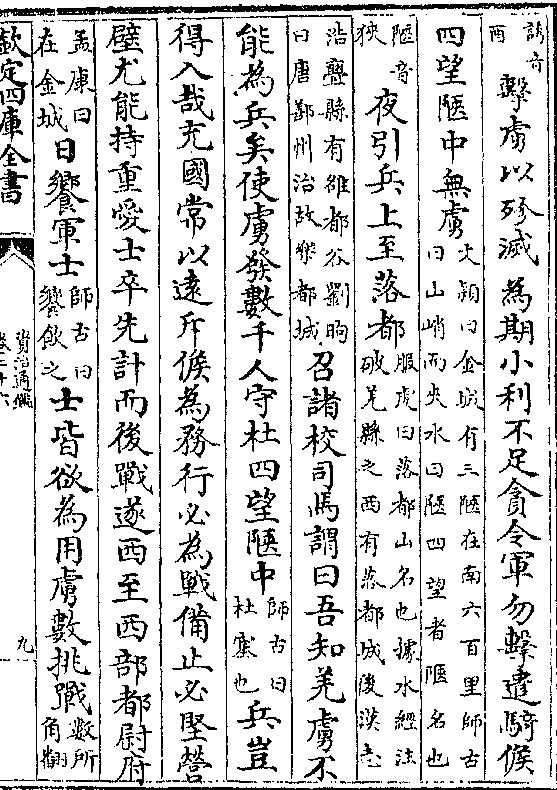 誘音酉擊虜以殄滅為期小利不足貪令軍勿擊遣騎候
四望陿中無虜文穎曰金城有三陿在南六百里師古曰山峭而夾水曰陿四望者陿名也
陿音狹夜引兵上至落都服虔曰落都山名也據水經注破羌縣之西有落都城後漢志
浩亹縣有雒都谷劉昫曰唐鄯州治故樂都城召諸校司馬謂曰吾知羌虜不
能為兵矣使虜發數千人守杜四望陿中師古曰杜塞也兵豈
得入哉充國常以遠斥候為務行必為戰備止必堅營
壁尤能持重愛士卒先計而後戰遂西至西部都尉府
孟康曰在金城日饗軍士師古曰饗飲之士皆欲為用虜數挑戰數所角翻
欽定四庫全書
資治通鑑
卷二十六
九